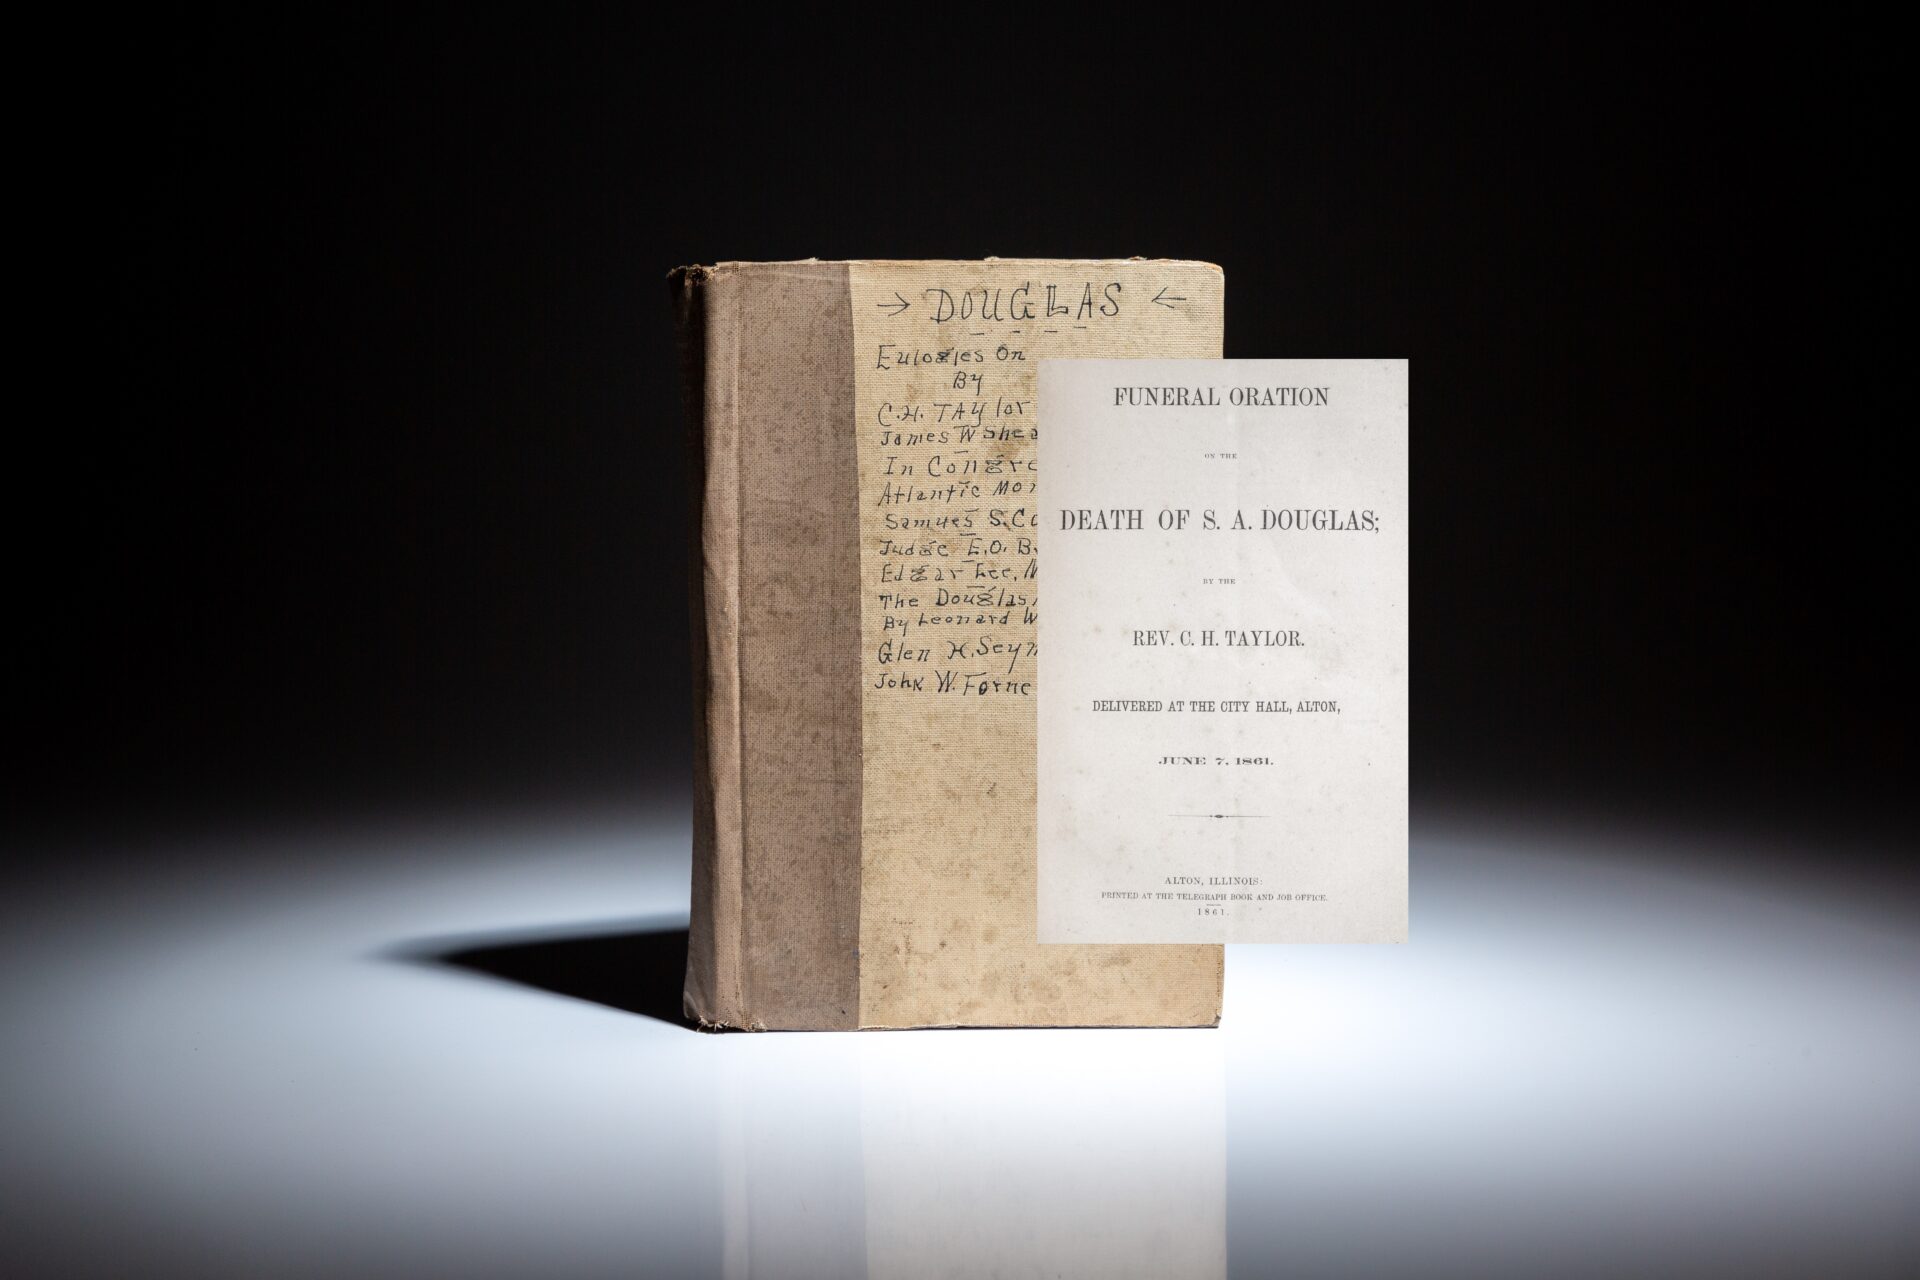 → DOUGLAS ←
Eulogies On
By
C.H. TAylor
James W Shea
In Congre
Atlantic Mon
Samues S. Co
Judge E.O. B
Edgar Lee, M
The Douglas
By Leonard W
Glen H. Seym
John W. Forne
FUNERAL ORATION
ON THE
DEATH OF S. A. DOUGLAS;
BY THE
REV. C. H. TAYLOR.
DELIVERED AT THE CITY HALL, ALTON,
JUNE 7, 1861.
ALTON, ILLINOIS:
PRINTED AT THE TELEGRAPH BOOK AND JOB OFFICE.
1861.